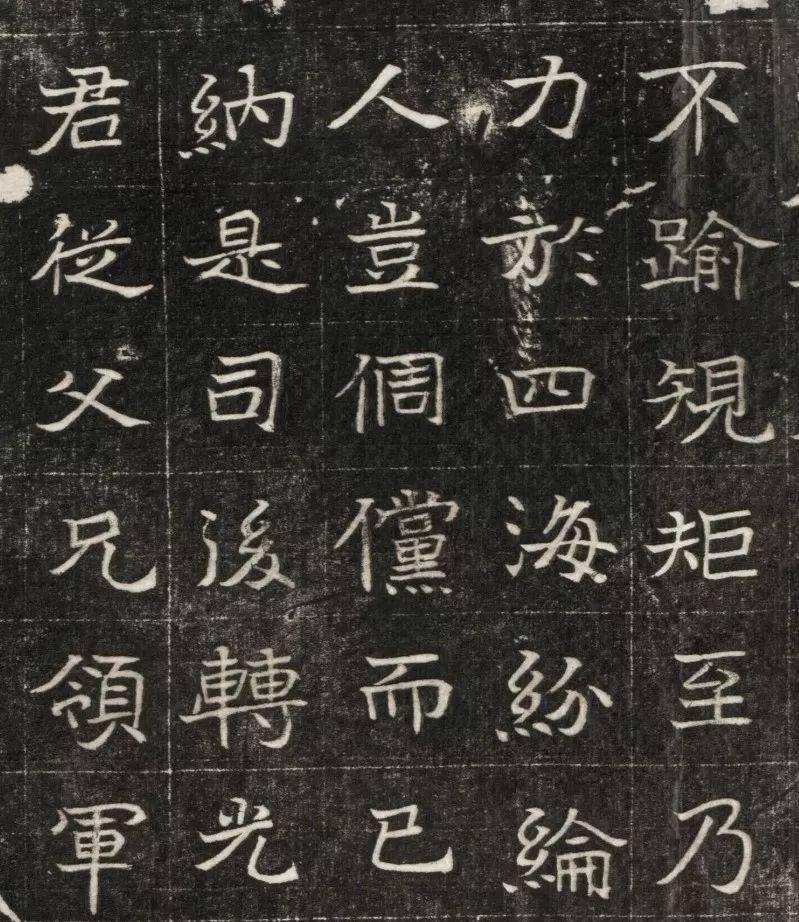 不踰規矩至乃
力於四海紛綸
人豈倜儻而已
納是司後轉光
君従父兄領軍